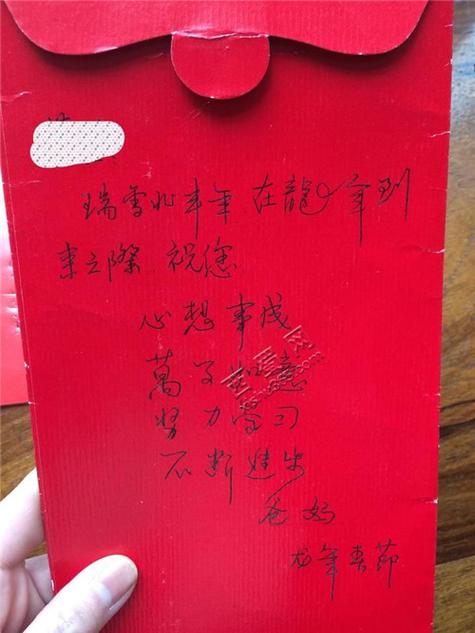 瑞雪兆丰年 在龍年到
来之際 祝您
心想事成
萬事如意
努力学习
不断進步
爸妈
龙年春節